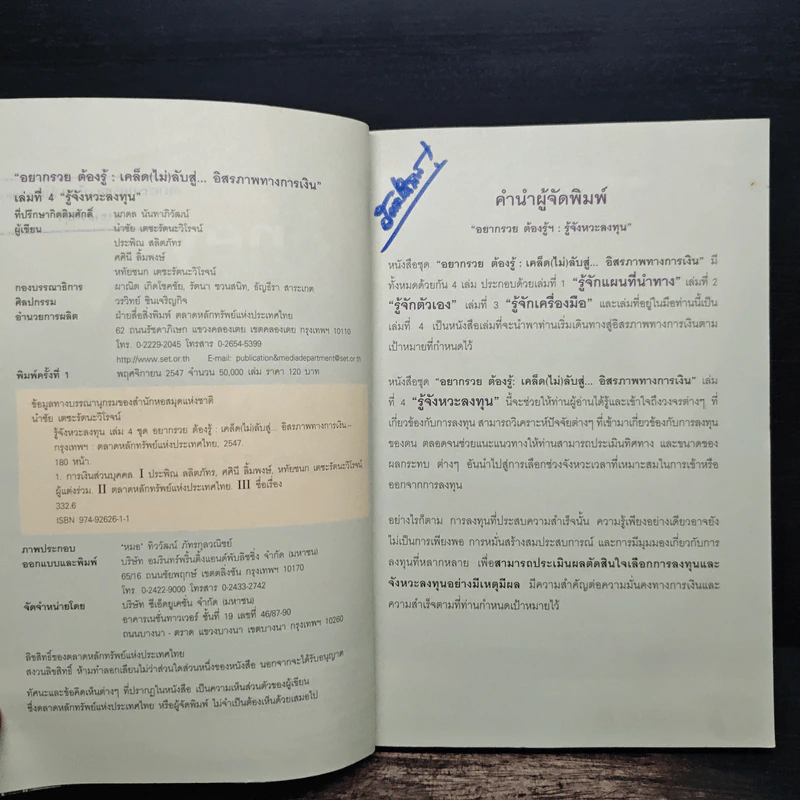 "อยากรวย ต้องรู้ : เคล็ด(ไม่)ลับสู่... อิสรภาพทางการเงิน"
เล่มที่ 4 "รู้จังหวะลงทุน"
ที่ปรึกษากิตติมศักดิ์ นภดล นันทาภิวัฒน์
ผู้เขียน นำชัย เตชะรัตนะวิโรจน์
ประพิณ ลลิตภัทร
ศศินี ลิ้มพงษ์
หทัยชนก เตชะรัตนะวิโรจน์
กองบรรณาธิการ ผาณิต เกิดโชคชัย, รัตนา ชวนสนิท, ธัญธีรา สาระเกต
ศิลปกรรม วรวิทย์ ชินเจริญกิจ
อำนวยการผลิต ฝ่ายสื่อสิ่งพิมพ์ ตลาดหลักทรัพย์แห่งประเทศไทย
62 ถนนรัชดาภิเษก แขวงคลองเตย เขตคลองเตย กรุงเทพฯ 10110
โทร. 0-2229-2045 โทรสาร 0-2654-5399
http://www.set.or.th E-mail: publication&mediadepartment@set.or.th
พิมพ์ครั้งที่ 1 พฤศจิกายน 2547 จำนวน 50,000 เล่ม ราคา 120 บาท
ข้อมูลทางบรรณานุกรมของสำนักหอสมุดแห่งชาติ
นำชัย เตชะรัตนะวิโรจน์
รู้จังหวะลงทุน เล่ม 4 ชุด อยากรวย ต้องรู้ : เคล็ด(ไม่)ลับสู่... อิสรภาพทางการเงิน.--
กรุงเทพฯ : ตลาดหลักทรัพย์แห่งประเทศไทย, 2547.
180 หน้า.
1. การเงินส่วนบุคคล. I ประพิณ ลลิตภัทร, ศศินี ลิ้มพงษ์, หทัยชนก เตชะรัตนะวิโรจน์,
ผู้แต่งร่วม. II ตลาดหลักทรัพย์แห่งประเทศไทย. III ชื่อเรื่อง
332.6
ISBN 974-92626-1-1
ภาพประกอบ "หมอ" ทิววัฒน์ ภัทรกุลวณิชย์
ออกแบบและพิมพ์ บริษัท อมรินทร์พริ้นติ้งแอนด์พับลิชชิ่ง จำกัด (มหาชน)
65/16 ถนนชัยพฤกษ์ เขตตลิ่งชัน กรุงเทพฯ 10170
โทร. 0-2422-9000 โทรสาร 0-2433-2742
จัดจำหน่ายโดย บริษัท ซีเอ็ดยูเคชั่น จำกัด (มหาชน)
อาคารเนชั่นทาวเวอร์ ชั้นที่ 19 เลขที่ 46/87-90
ถนนบางนา - ตราด แขวงบางนา เขตบางนา กรุงเทพฯ 10260
ลิขสิทธิ์ของตลาดหลักทรัพย์แห่งประเทศไทย
สงวนลิขสิทธิ์ ห้ามทำลอกเลียนไม่ว่าส่วนใดส่วนหนึ่งของหนังสือ นอกจากจะได้รับอนุญาต
ทัศนะและข้อคิดเห็นต่างๆ ที่ปรากฏในหนังสือ เป็นความเห็นส่วนตัวของผู้เขียน
ซึ่งตลาดหลักทรัพย์แห่งประเทศไทย หรือผู้จัดพิมพ์ ไม่จำเป็นต้องเห็นด้วยเสมอไป
คำนำผู้จัดพิมพ์
"อยากรวย ต้องรู้ฯ : รู้จังหวะลงทุน"
หนังสือชุด "อยากรวย ต้องรู้ : เคล็ด(ไม่)ลับสู่... อิสรภาพทางการเงิน" มี
ทั้งหมดด้วยกัน 4 เล่ม ประกอบด้วยเล่มที่ 1 "รู้จักแผนที่นำทาง" เล่มที่ 2
"รู้จักตัวเอง" เล่มที่ 3 "รู้จักเครื่องมือ" และเล่มที่อยู่ในมือท่านนี้เป็น
เล่มที่ 4 เป็นหนังสือเล่มที่จะนำพาท่านเริ่มเดินทางสู่อิสรภาพทางการเงินตาม
เป้าหมายที่กำหนดไว้
หนังสือชุด "อยากรวย ต้องรู้: เคล็ด(ไม่)ลับสู่... อิสรภาพทางการเงิน" เล่ม
ที่ 4 "รู้จังหวะลงทุน" นี้จะช่วยให้ท่านผู้อ่านได้รู้และเข้าใจถึงวงจรต่างๆ ที่
เกี่ยวข้องกับการลงทุน สามารถวิเคราะห์ปัจจัยต่างๆ ที่เข้ามาเกี่ยวข้องกับการลงทุน
ของตน ตลอดจนช่วยแนะแนวทางให้ท่านสามารถประเมินทิศทาง และขนาดของ
ผลกระทบ ต่างๆ อันนำไปสู่การเลือกช่วงจังหวะเวลาที่เหมาะสมในการเข้าหรือ
ออกจากการลงทุน
อย่างไรก็ตาม การลงทุนที่ประสบความสำเร็จนั้น ความรู้เพียงอย่างเดียวอาจยัง
ไม่เป็นการเพียงพอ การหมั่นสร้างสมประสบการณ์ และการมีมุมมองเกี่ยวกับการ
ลงทุนที่หลากหลาย เพื่อสามารถประเมินผลตัดสินใจเลือกการลงทุนและ
จังหวะลงทุนอย่างมีเหตุมีผล มีความสำคัญต่อความมั่นคงทางการเงินและ
ความสำเร็จตามที่ท่านกำหนดเป้าหมายไว้